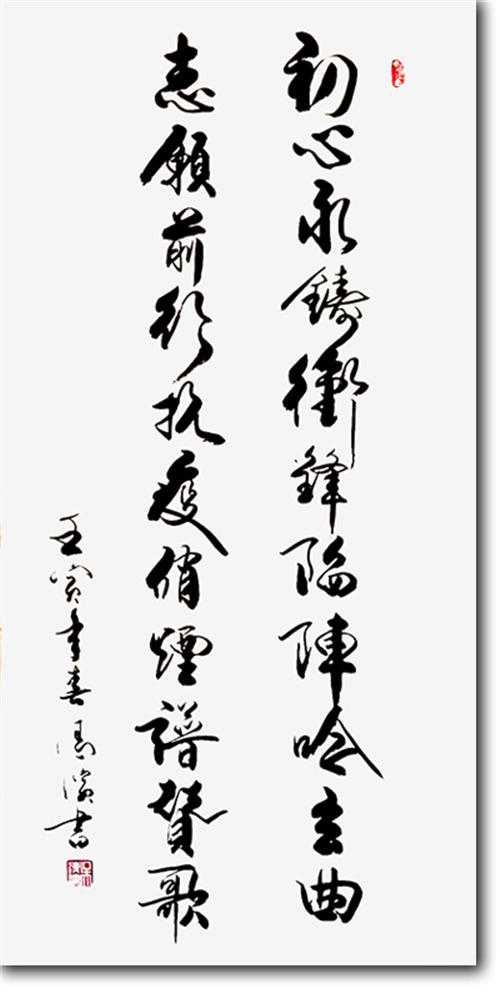 初心永鑄衝鋒陷陣吟主曲
志願前行抗疫俏煙譜贊歌
壬寅年春書